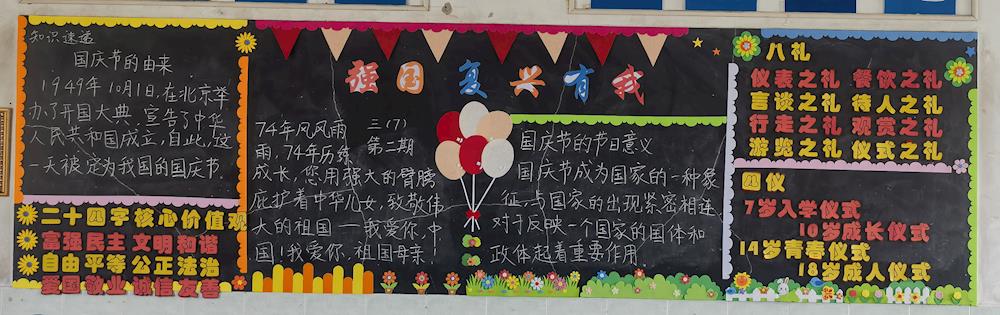 知识速递
国庆节的由来
1949年10月1日,在北京举
办了开国大典,宣告了中华
人民共和国成立,自此,这
一天被定为我国的国庆节.
二十四字核心价值观
富强民主 文明和谐
自由平等 公正法治
爱国敬业 诚信友善
强国复兴有我
三(7)
第二期
74年风风雨
雨,74年历练
成长,您用强大的臂膀
庇护着中华儿女,致敬伟
大的祖国——我爱你,中
国!我爱你,祖国母亲!
国庆节的节日意义
国庆节成为国家的一种象
征,与国家的出现紧密相连
对于反映一个国家的国体和
政体起着重要作用.
八礼
仪表之礼 餐饮之礼
言谈之礼 待人之礼
行走之礼 观赏之礼
游览之礼 仪式之礼
四仪
7岁入学仪式
10岁成长仪式
14岁青春仪式
18岁成人仪式